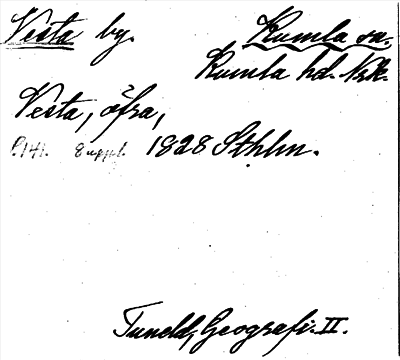 Vesta by. Kumla sn.
Kumla hd. Nrk.
Vesta, öfra,
s. 141. 8 uppl. 1828 Sthlm.
Tuneld, Geografi. II.